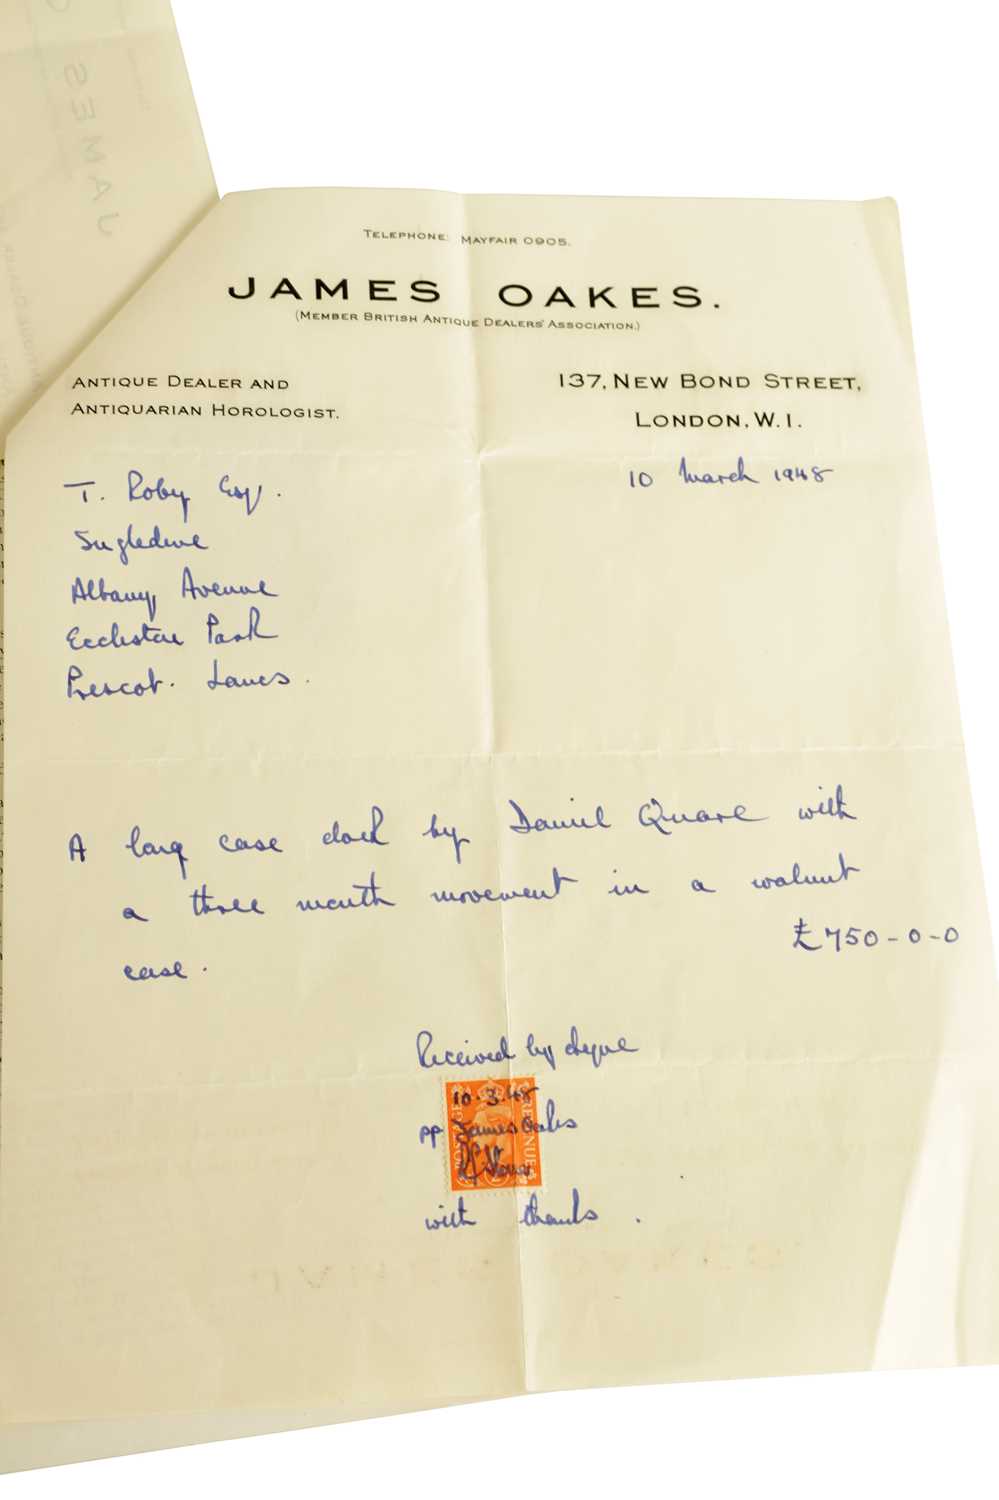 TELEPHONE: MAYFAIR 0905.
JAMES OAKES.
(MEMBER BRITISH ANTIQUE DEALERS' ASSOCIATION.)
ANTIQUE DEALER AND
ANTIQUARIAN HOROLOGIST.
137, NEW BOND STREET,
LONDON, W.1.
10 March 1948
T. Roby Esq.
Albany Avenue
Eccleston Park
Prescot. Lancs.
A long case clock by Daniel Quare with
a three month movement in a walnut
case.
£750-0-0
Received by cheque
10.3.48
pp James Oakes
POSTAGE REVENUE
with thanks.
JAMES